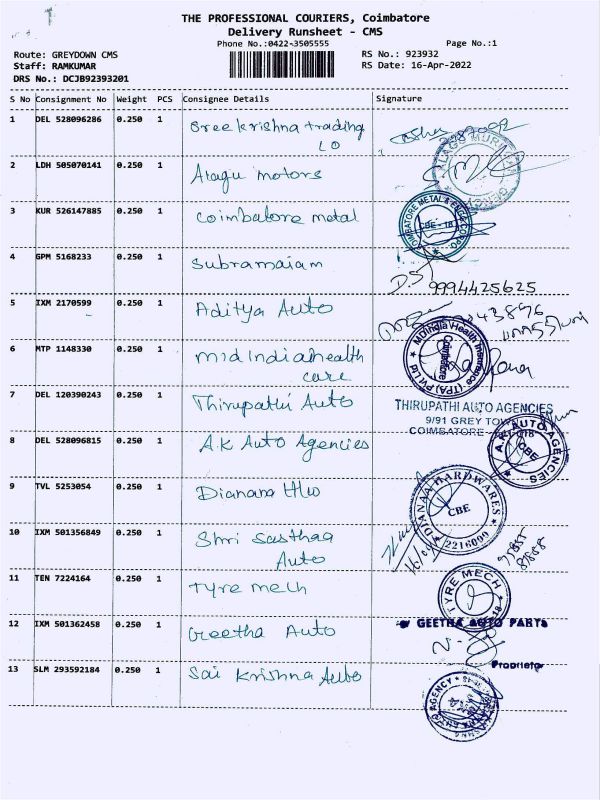 THE PROFESSIONAL COURIERS, Coimbatore
Delivery Runsheet - CMS
Phone No.:0422-3505555
Page No.:1
Route: GREYDOWN CMS
RS No.: 923932
Staff: RAMKUMAR
RS Date: 16-Apr-2022
DRS No.: DCJB92393201
S No Consignment No Weight PCS Consignee Details Signature
1 DEL 528096286 0.250 1 Sree krishna trading
LO
2 LDH 505070141 0.250 1 Alagu motors
3 KUR 526147885 0.250 1 Coimbatore metal
COIMBATORE METAL
CBE - 18
4 GPM 5168233 0.250 1 Subramaiam
9994425625
5 IXM 2170599 0.250 1 Aditya Auto
6 MTP 1148330 0.250 1 mid India health
care
MDIndia Health Insurance (TPA) Pvt Ltd
Coimbatore
7 DEL 120390243 0.250 1 Thirupathi Auto
THIRUPATHI AUTO AGENCIES
9/91 GREY TOWN
COIMBATORE
8 DEL 528096815 0.250 1 A.K Auto Agencies
A.K. AUTO AGENCIES
CBE
9 TVL 5253054 0.250 1 Dianana
DIANAA HARDWARES
CBE
2216099
10 IXM 501356849 0.250 1 Shri Sasthaa
Auto
11 TEN 7224164 0.250 1 Tyre mech
TYRE MECH
12 IXM 501362458 0.250 1 Geetha Auto
GEETHA AUTO PARTS
Proprietor
13 SLM 293592184 0.250 1 Sai Krishna Auto
AGENCY